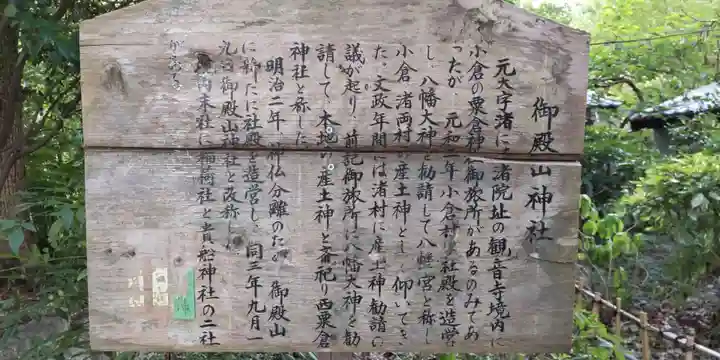 御殿山神社
元大字渚に渚院址の観音寺境内に
小倉の粟倉神 御旅所があるのみであ
ったが 元和二年小倉村は社殿を造営
し、八幡大神を勧請して八幡宮と称し
小倉 渚両村の産土神として仰いでき
た、文政年間には渚村に産土神勧請の
議が起り、前記御旅所に八幡大神を勧
請して、本地の産土神と斎祀り西粟倉
神社と称した
明治二年 神仏分離のため 御殿山
に新たに社殿を造営し、同三年九月一
御殿山神社と改称し
末社に稲荷社と貴船神社の二社
がある